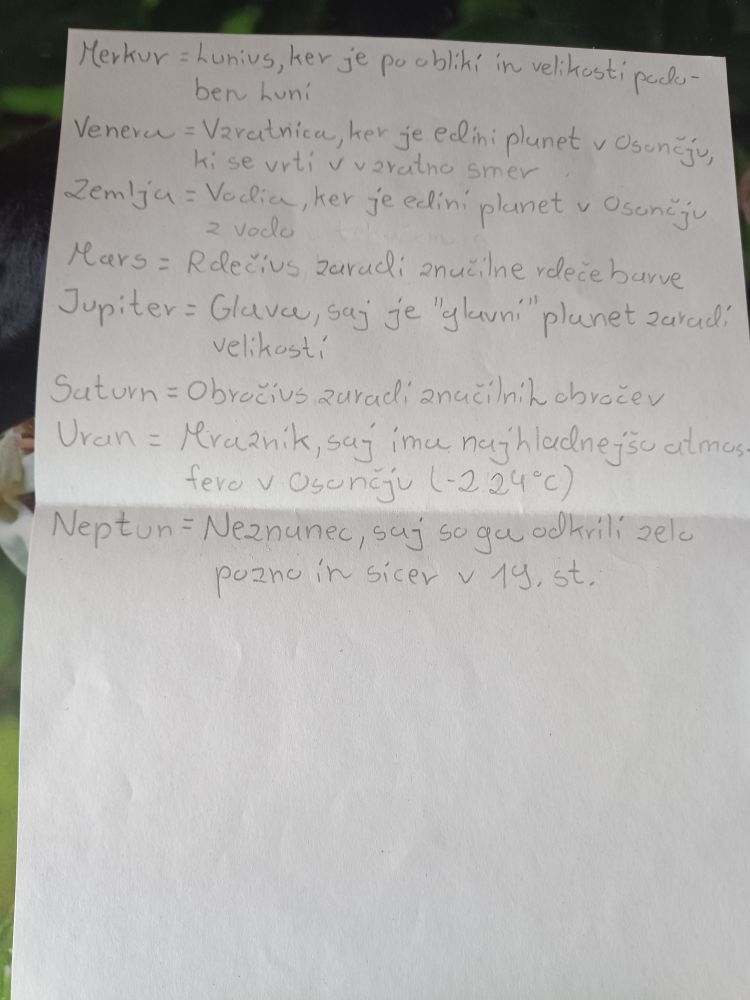 Merkur = Lunius, ker je po obliki in velikosti podo-
ben Luni
Venera = Vzratnica, ker je edini planet v Osončju,
ki se vrti v vzratno smer
Zemlja = Vodia, ker je edini planet v Osončju
z vodo
Mars = Rdečius zaradi značilne rdeče barve
Jupiter = Glava, saj je "glavni" planet zaradi
velikosti
Saturn = Obročius zaradi značilnih obročev
Uran = Mraznik, saj ima najhladnejšo atmos-
fero v Osončju (-224°C)
Neptun = Neznanec, saj so ga odkrili zelo
pozno in sicer v 19. st.